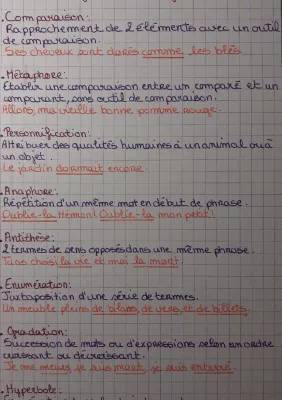 .Comparaison:
Rapprochement de 2 éléments avec un outil
de comparaison.
Ses cheveux sont dorés comme les blés.
.Métaphore:
Etablir une comparaison entre un comparé et un
comparant, sans outil de comparaison.
Allons, ma vieille bonne pomme rouge.
.Personnification:
Attribuer des qualités humaines à un animal ou à
un objet.
Le jardin dormait encore.
.Anaphore:
Répétition d'un même mot en début de phrase.
Oublie-la Hémon! Oublie-la mon petit!
.Antithèse:
2 termes de sens opposés dans une même phrase.
Tu as choisi la vie et moi la mort.
.Enumération:
Juxtaposition d'une série de termes.
Un meuble pleins de bilans, de vers, et de billets.
.Gradation:
Succession de mots ou d'expressions selon un ordre
croissant ou décroissant.
Je me meurs, je suis mort, je suis enterré.
.Hyperbole: